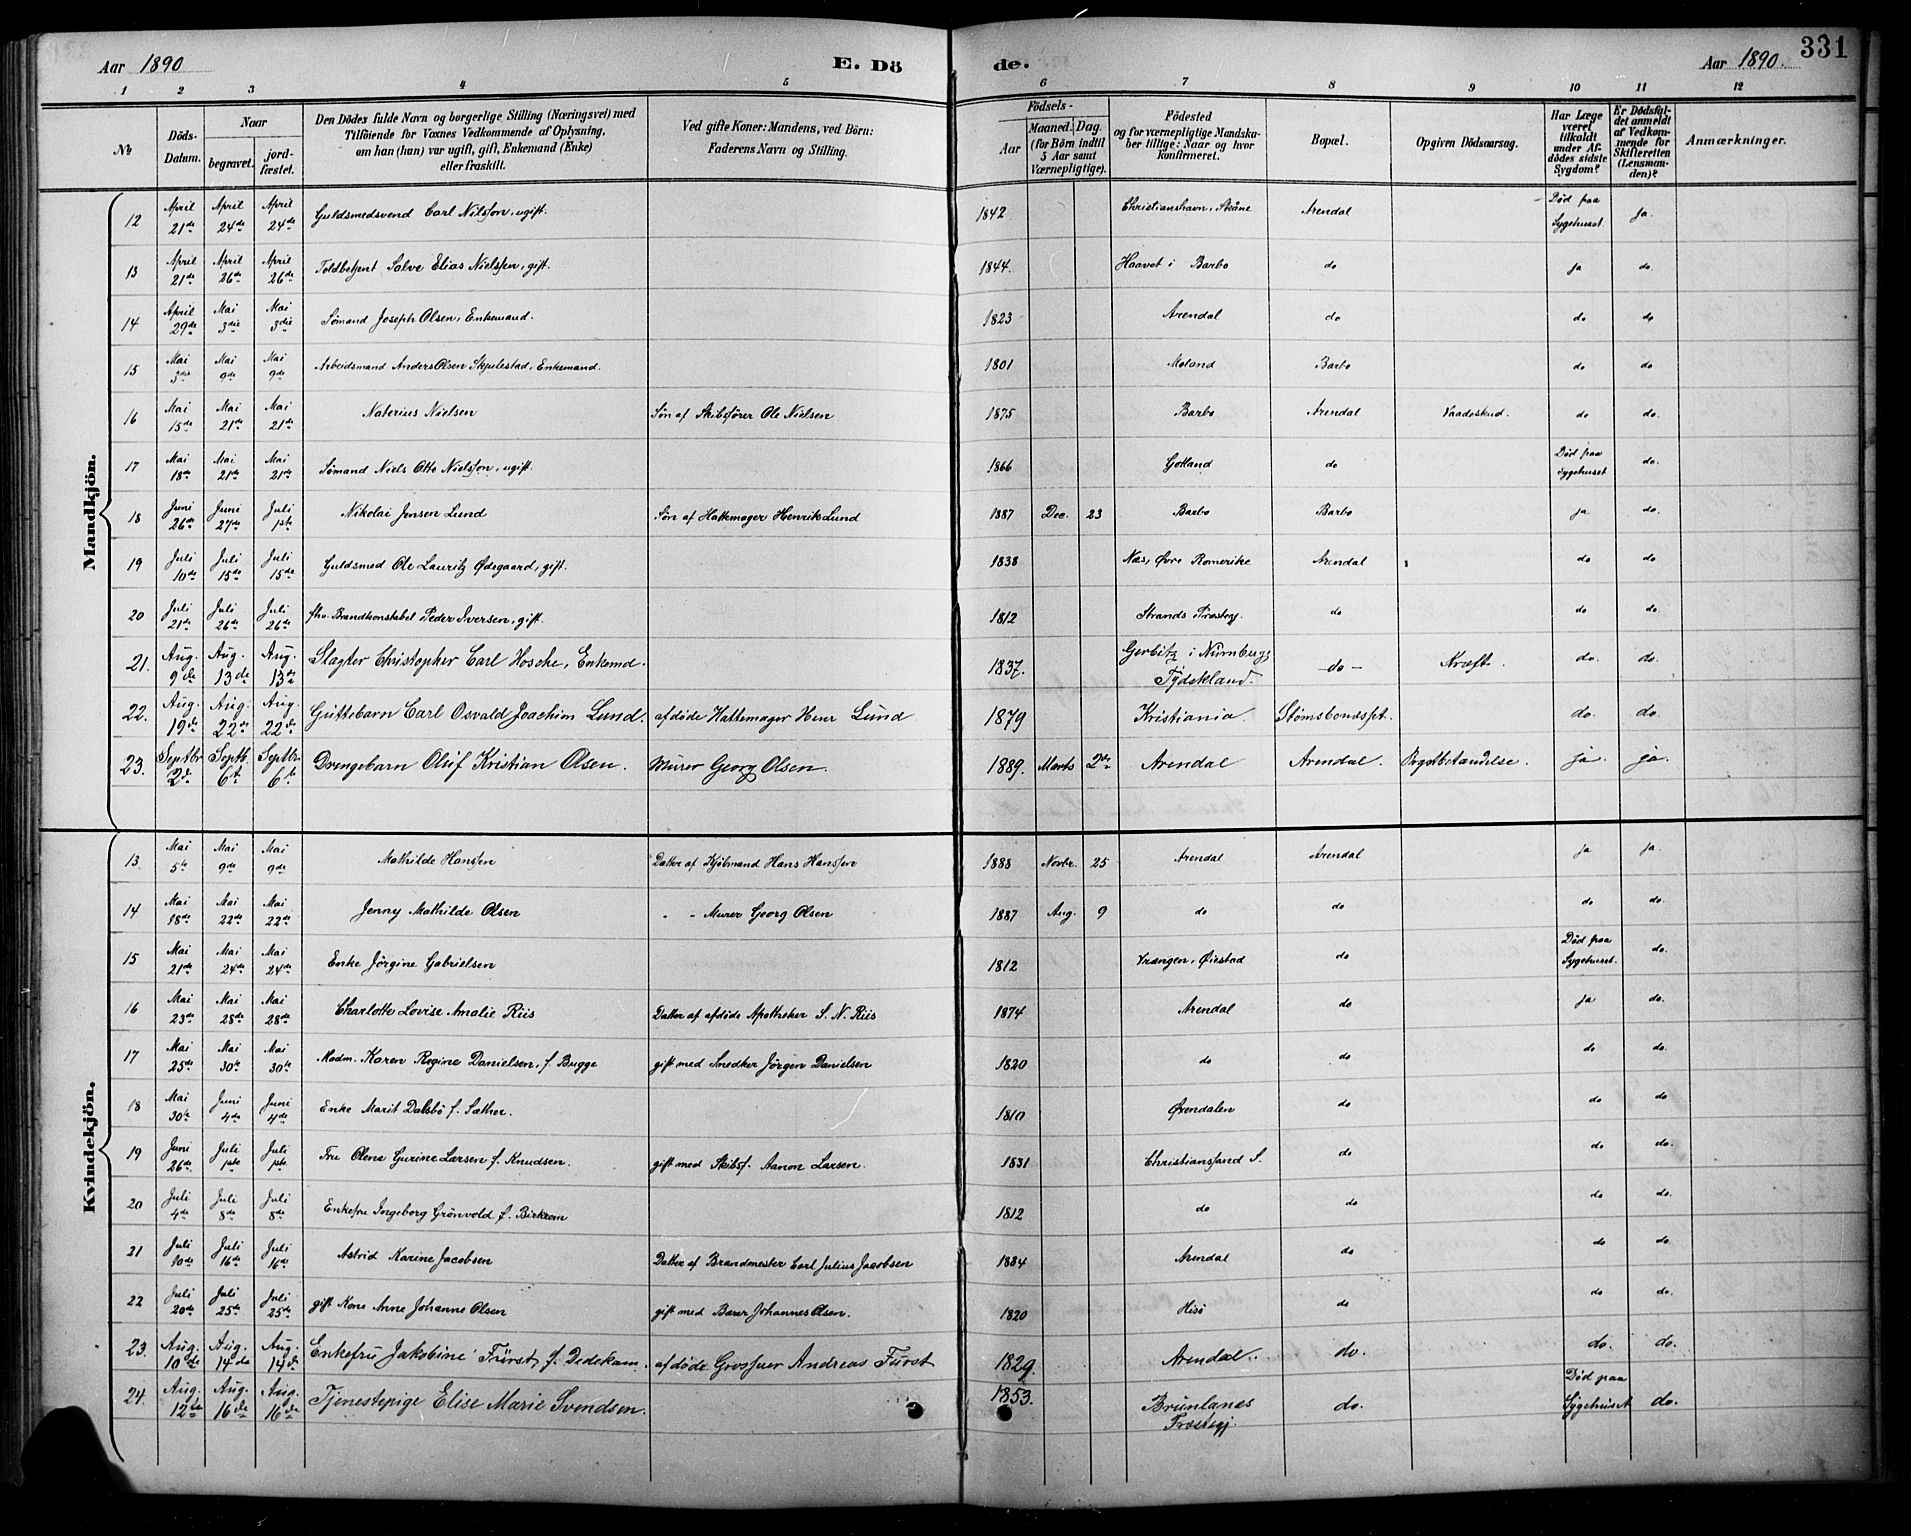 331
Aar 1890
E. Dö
de.
Aar 1890.
1 2 3 4 5 6 7 8 9 10 11 12
No
Döds-Datum.
Naar
begravet.
jord-fæstet.
Den Dödes fulde Navn og borgerlige Stilling (Næringsvei) med
Tilföiende for Voxnes Vedkommende af Oplysning,
om han (hun) var ugift, gift, Enkemand (Enke)
eller fraskilt.
Ved gifte Koner: Mandens, ved Börn:
Faderens Navn og Stilling.
Födsels-
Aar
Maaned.
Dag.
(for Börn indtil
5 Aar samt
Værnepligtige).
Födested
og for værnepligtige Mandska-
ber tillige: Naar og hvor
konfirmeret.
Bopæl.
Opgiven Dödsaarsag.
Har Læge
været
tilkaldt
under Af-
dödes sidste
Sygdom?
Er Dödsfal-
det anmeldt
af Vedkom-
mende for
Skifteretten
(Lensman-
den)?
Anmærkninger.
Mandkjön.
12 April 21de April 24de April 24de Guldsmedsvend Carl Nilsson, ugift. 1842 Christianshavn, Skåne Arendal Död paa Sygehuset. ja.
13 April 21de April 26de April 26de Toldbetjent Salve Elias Nielssen, gift. 1844. Haavet i Barbo do ja do.
14 April 29de Mai 3die Mai 3die Sömand Joseph Olsen, Enkemand. 1823 Arendal do do do
15 Mai 3die Mai 9de Mai 9de Arbeidsmand Anders Olsen Skjulestad, Enkemand. 1801 Moland Barbo do do
16 Mai 15de Mai 21de Mai 21de Naterius Nielsen Søn af Skibsfører Ole Nielsen 1875 Barbo Arendal Vaadeskud. do do.
17 Mai 18de Mai 21de Mai 21de Sømand Niels Otto Nielsson, ugift. 1866 Gotland do Död paa Sygehuset do.
18 Juni 26de Juni 27de Juli 1ste Nikolai Jensen Lund Søn af Hattemager Henrik Lund 1887 Dec. 23 Barbo Barbo ja do.
19 Juli 10de Juli 15de Juli 15de Guldsmed Ole Lauritz Ødegaard, gift. 1838 Næs, Øvre Romerike Arendal do do
20 Juli 21de Juli 26de Juli 26de fhv. Brandkonstabel Peder Iversen, gift. 1812 Strands Præstegj. do do do
21. Aug. 9de Aug. 13de Aug. 13de Slagter Christopher Carl Hosche, Enkemd. 1837. Gerbitz i Nürnberg, Tydskland. do Kræft. do. do.
22. Aug. 19de Aug. 22de Aug. 22de Guttebarn Carl Osvald Joachim Lund. afdøde Hattemager Henr Lund 1879 Kristiania. Strømsbonæsset. do. do.
23. Septbr 2d Septb. 6t Septbr 6t Drengebarn Oluf Kristian Olsen. Murer Georg Olsen. 1889. Marts 2den Arendal Arendal. Brystbetændelse. ja. ja.
Kvindekjön.
13 Mai 5te Mai 9de Mai 9de Mathilde Hanssen Datter af Kjøbmand Hans Hanssen 1888 Novbr. 25 Arendal Arendal ja ja.
14 Mai 18de Mai 22de Mai 22de Jenny Mathilde Olsen " " Murer Georg Olsen 1887 Aug. 9 do do do do.
15 Mai 21de Mai 24de Mai 24de Enke Jörgine Gabrielsen 1812 Vrængen, Øiestad do Död paa Sygehuset. do.
16 Mai 23de Mai 28de Mai 28de Charlotte Lovise Amalie Riis Datter af afdøde Apotheker S. N. Riis 1874 Arendal do ja do.
17 Mai 25de Mai 30te Mai 30te Madm. Karen Regine Danielsen, f. Bugge gift med Snedker Jörgen Danielsen 1820 do do do do.
18 Mai 30te Juni 4de Juni 4de Enke Marit Dalsbö f. Sæther. 1810 Ørendalen do do do
19 Juni 26de Juli 1ste Juli 1ste Fru Olene Gurine Larsen f. Knudsen. gift med Skibsf. Aanon Larsen. 1831 Christianssand S. do do do.
20 Juli 4de Juli 8de Juli 8de Enkefru Ingeborg Grönvold f. Birkrem 1812 do do do do.
21 Juli 10de Juli 16de Juli 16de Astrid Karine Jacobsen Datter af Brandmester Carl Julius Jacobsen 1884 Arendal do do do.
22 Juli 20de Juli 25de Juli 25de gift Kone Anne Johanne Olsen gift med Bærer Johannes Olsen. 1820 Hisö do do do.
23. Aug. 10de Aug. 14de Aug. 14de Enkefru Jakobine Fürst f. Dedekam. afdøde Grosserer Andreas Fürst 1829. Arendal. do. do. do.
24. Aug. 12de Aug. 16de Aug. 16de Tjenestepige Elise Marie Svendsen. 1853. Brunlanes Præstegj. do. Død paa Sygehuset do.